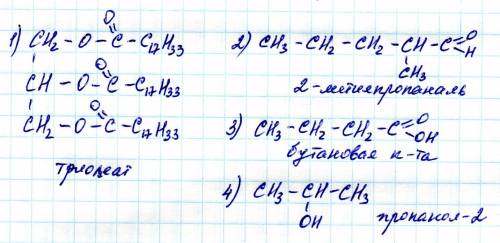 1) CH₂ - O - C - C₁₇H₃₃
O
CH - O - C - C₁₇H₃₃
O
CH₂ - O - C - C₁₇H₃₃
O
триолеат
2) CH₃ - CH₂ - CH₂ - CH - C = O
H
CH₃
2-метилпропаналь
3) CH₃ - CH₂ - CH₂ - C = O
OH
бутановая к-та
4) CH₃ - CH - CH₃
OH
пропанол-2